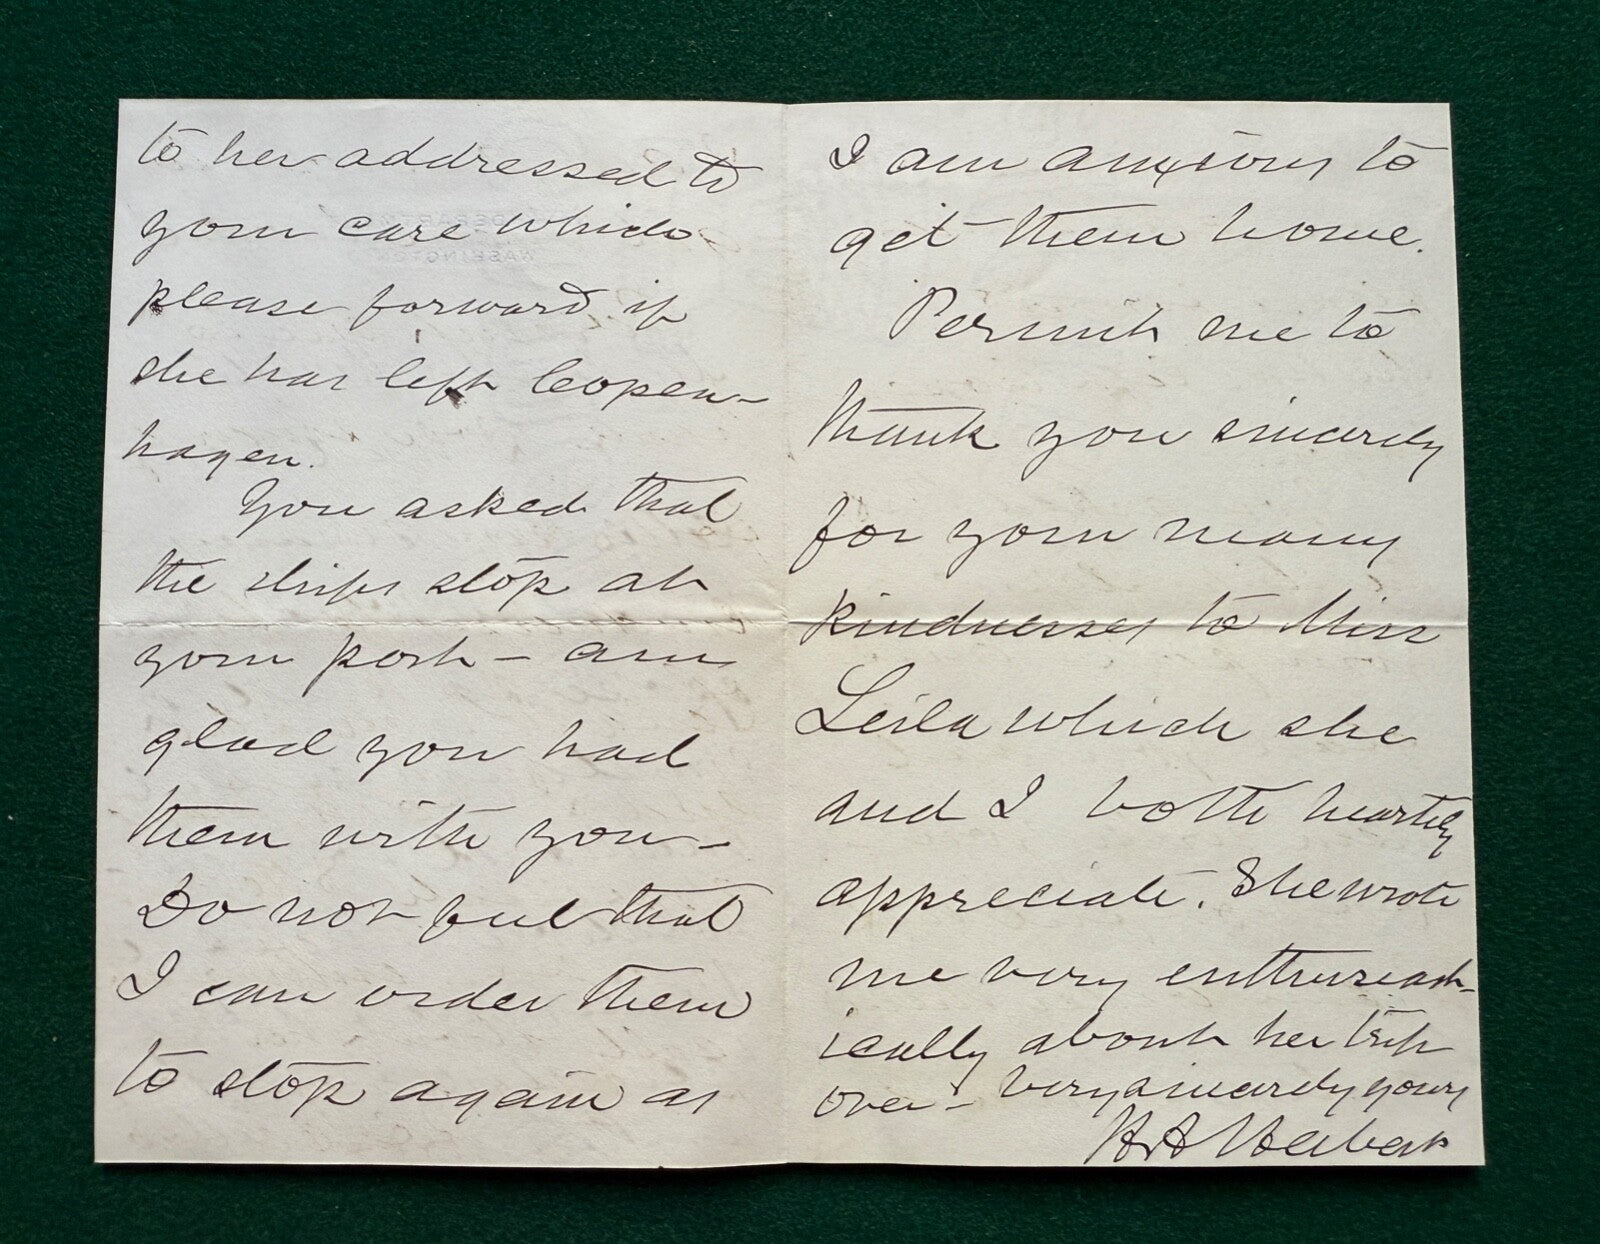 to her addressed to
your care which
please forward if
she has left Copen-
hagen.
You asked that
the ships stop at
your port - am
glad you had
them with you -
Do not feel that
I can order them
to stop again as
I am anxious to
get them home.
Permit me to
thank you sincerely
for your many
kindnesses to Miss
Leila which she
and I both heartily
appreciate. She wrote
me very enthusiast-
ically about her trip
over - Very sincerely yours
H A Herbert
WASHINGTON